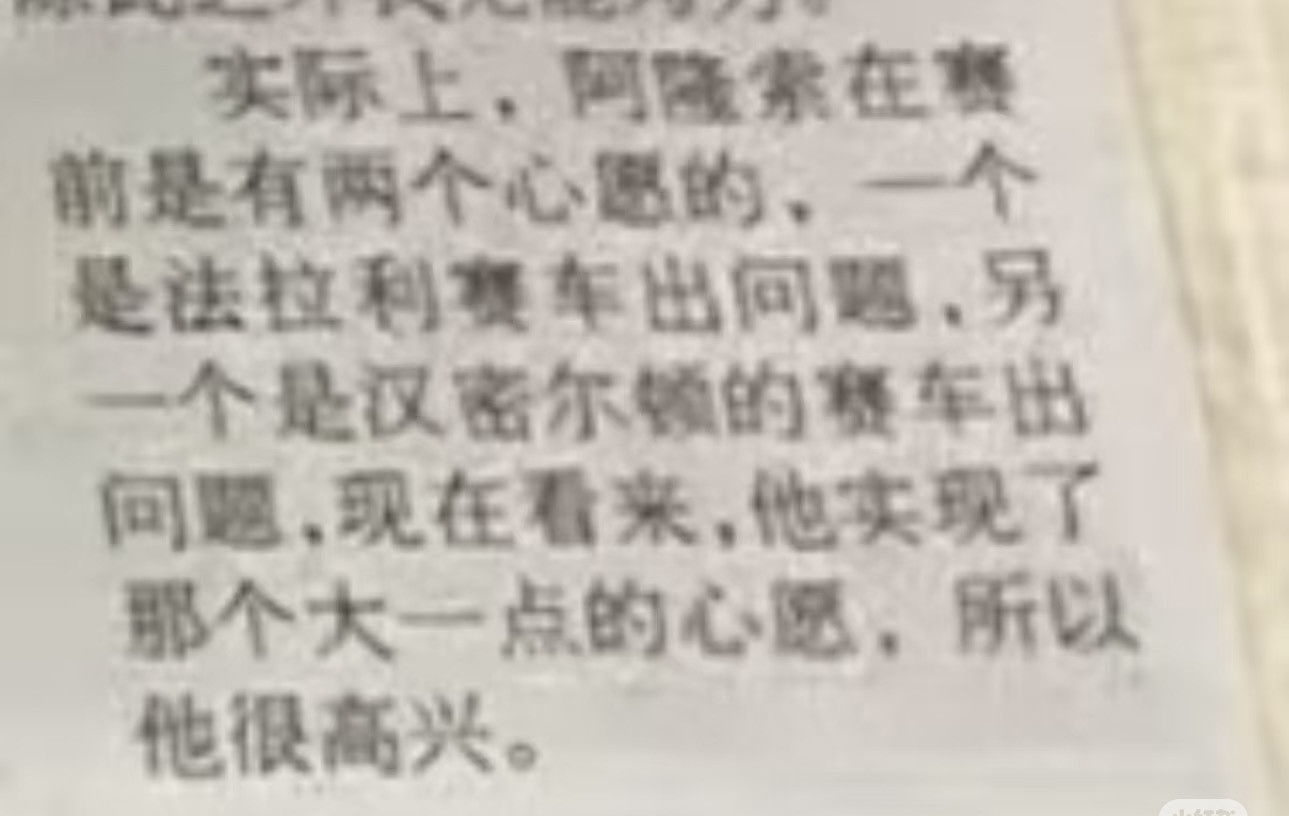 实际上，阿隆索在赛
前是有两个心愿的，一个
是法拉利赛车出问题，另
一个是汉密尔顿的赛车出
问题，现在看来，他实现了
那个大一点的心愿，所以
他很高兴。